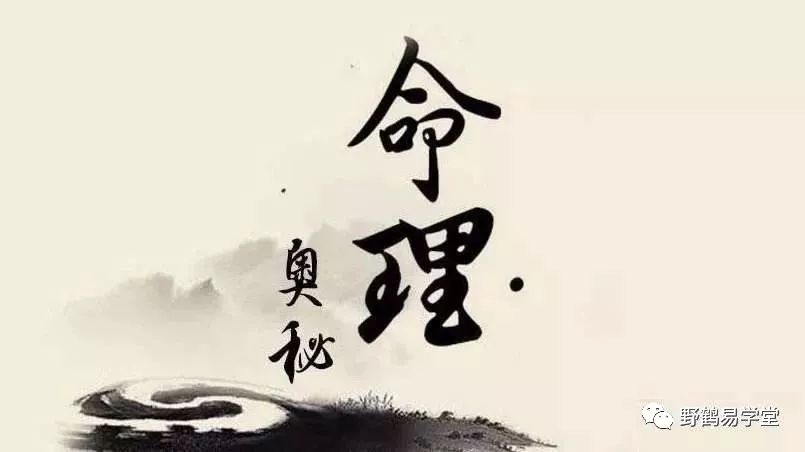 命理
奥秘
野鹤易学堂